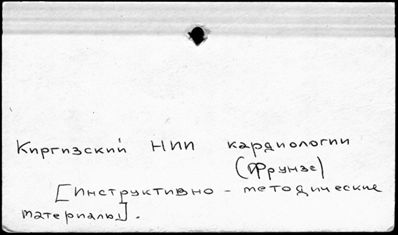 Киргизский НИИ кардиологии
(Фрунзе)
[Инструктивно - методические
материалы].